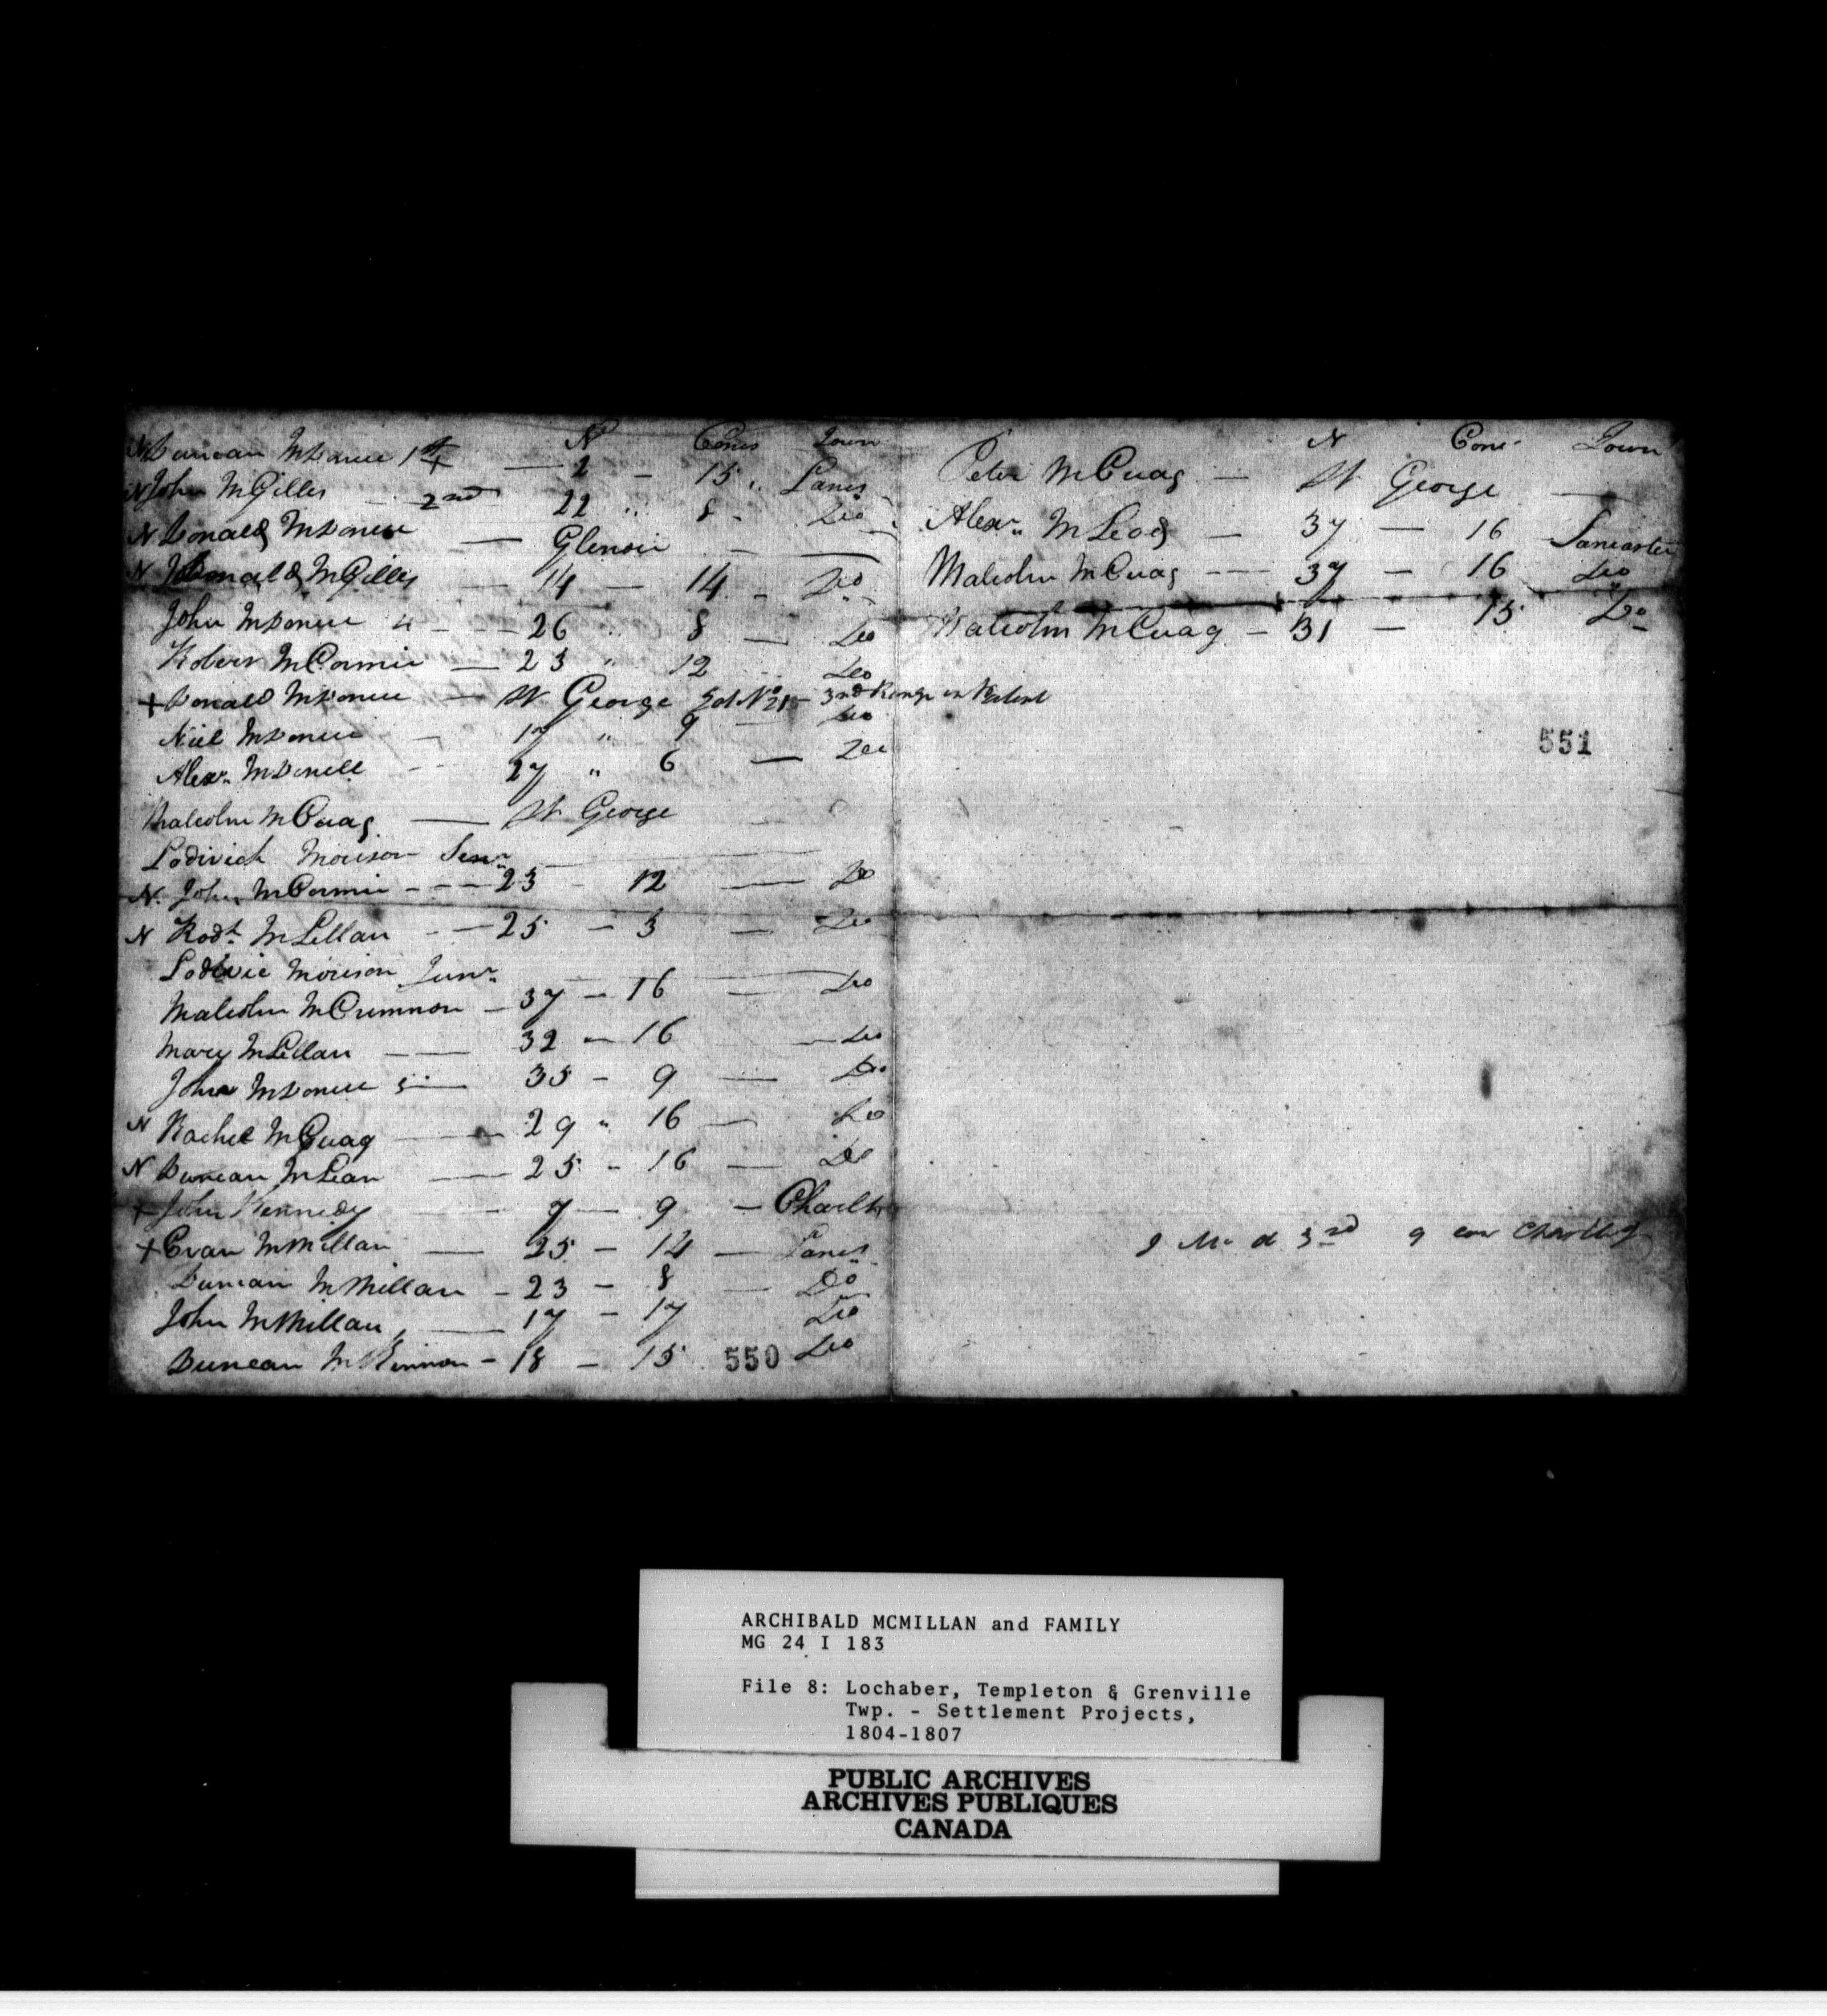 N° Cons Town
N Duncan McDonell 1st + — 2 — 15 " Lancr
N John McGilles — 2nd 22 " 8 - Do
N Donald McDonell — Glenoir — —
N Donald McGilles — 14 — 14 - Do
John McDonell 4 - - - 26 " 8 — Do
Robert McCormic — 23 " 12 Do
+ Donald McDonell — St George Lot No 21 - 3nd Range in Patent
Niel McDonell — 17 " 9 — Do
Alexr McDonell - - 27 " 6 — Do
Malcolm McCuag — St George
Lodivich Morison Senr
N. John McCormic - - - 23 - 12 — Do
N Rodk McLellan - — 25 — 3 — Do
Lodivic Morison Junr
Malcolm McCrimmon — 37 — 16 — Do
Mary McLellan — — 32 — 16 — Do
John McDonell 5 — 35 — 9 — Do
N Rachel McCuag — 29 " 16 — Do
N Duncan McLean — 25 - 16 — Do
+ John Kennedy — - 7 — 9 — Charltn
+ Evan McMillan — 25 — 14 — Lancr
Duncan McMillan — 23 — 8 — Do
John McMillan, — 17 — 17 Do
Duncan McKinnon — 18 — 15 Do
550
N Cons Town
Peter McCuag — St George —
Alexr McLeod — 37 — 16 Lancaster
Malcolm McCuag - - - 37 — 16 Do
Malcolm McCuag — 31 — 15 Do
551
J Mc d 3rd 9 con Charlbg
ARCHIBALD MCMILLAN and FAMILY
MG 24 I 183
File 8: Lochaber, Templeton & Grenville
Twp. - Settlement Projects,
1804-1807
PUBLIC ARCHIVES
ARCHIVES PUBLIQUES
CANADA